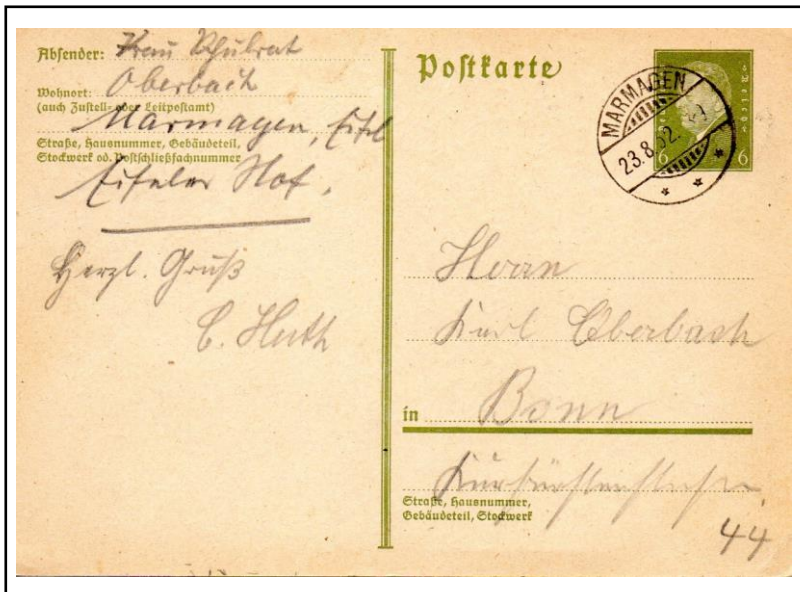 Absender: Frau Schulrat
Wohnort: Oberbach
(auch Zustell- oder Leitpostamt)
Marmagen, Eifel
Straße, Hausnummer, Gebäudeteil,
Stockwerk od. Postschließfachnummer
Eifeler Hof.
Herzl. Gruß
C. Huth
Postkarte
MARMAGEN
23.8.32.
6 6
Herrn
Karl Oberbach
in Bonn
Kurfürstenstraße
Straße, Hausnummer,
Gebäudeteil, Stockwerk
44